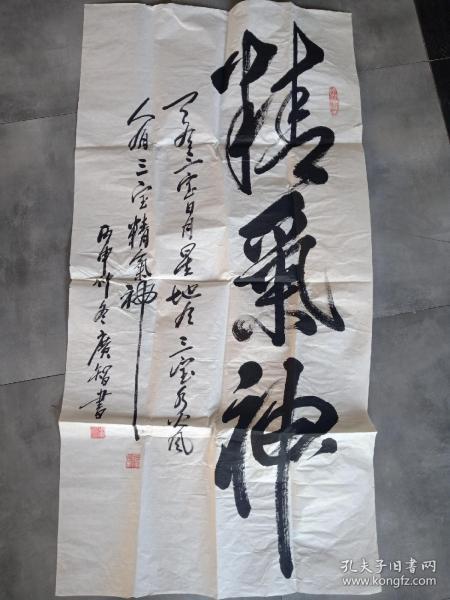 精氣神
天有三宝日月星地有三宝水火風
人有三宝精氣神
丙申仲冬廣智書
孔夫子旧书网
www.kongfz.com